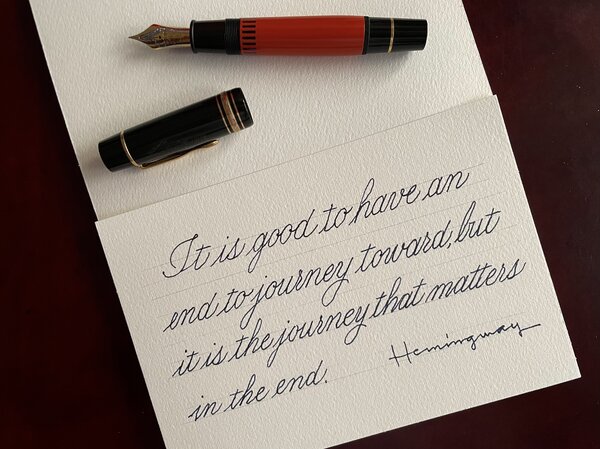 It is good to have an
end to journey toward, but
it is the journey that matters
in the end.
Hemingway